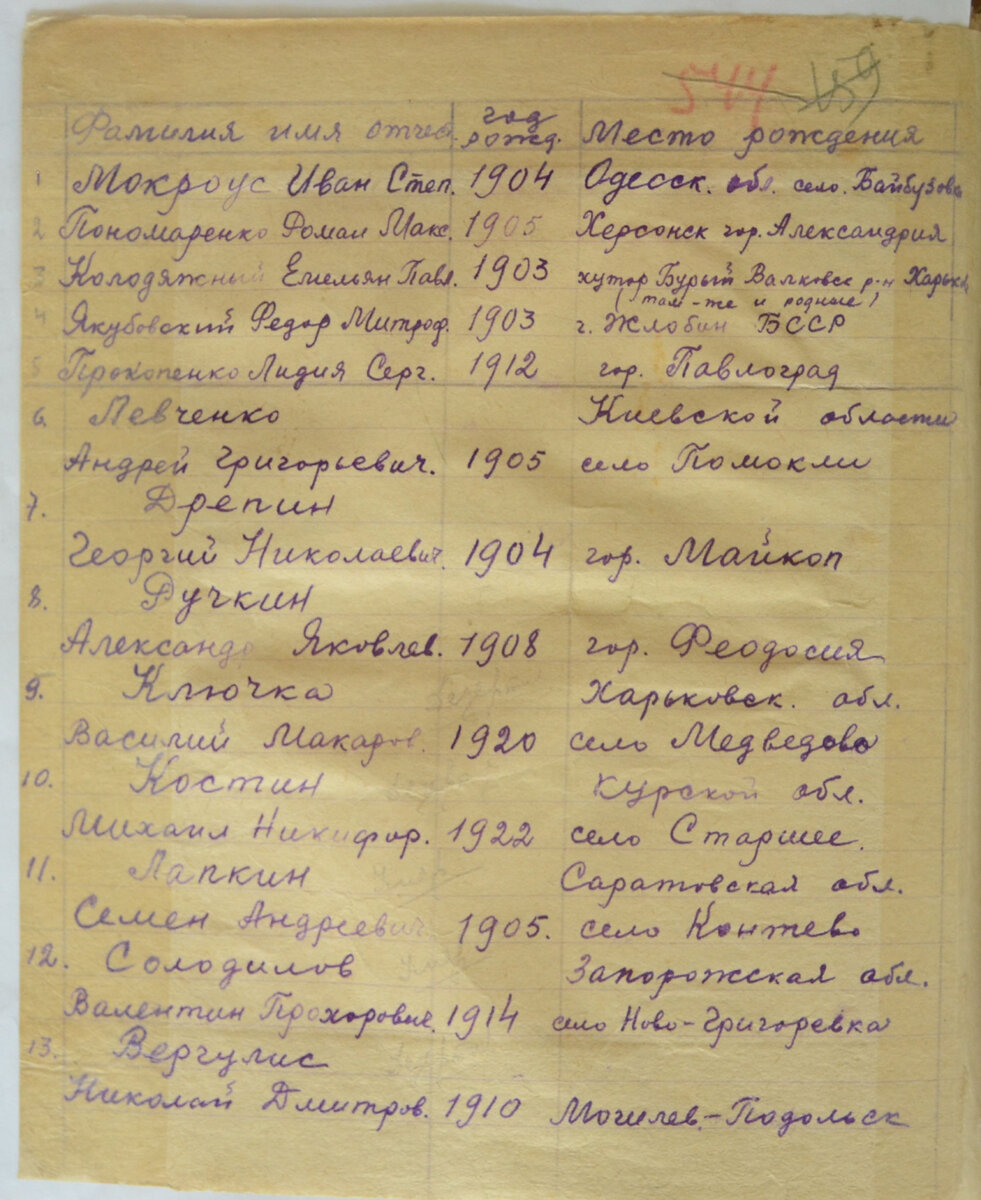 544 159
Фамилия имя отчес. год рожд. Место рождения
1 Мокроус Иван Степ. 1904 Одесск. обл. село. Байбузовк
2 Пономаренко Роман Макс. 1905 Херсонск гор. Александрия
3 Колодяжный Емельян Павл. 1903 хутор Бурый Валковск р-н Харьк
(там-же и родные)
4 Якубовский Федор Митроф. 1903 г. Жлобин БССР
5 Прокопенко Лидия Серг. 1912 гор. Павлоград
6. Левченко Киевской области
Андрей Григорьевич. 1905 село Помокли
7. Дрепин
Георгий Николаевич. 1904 гор. Майкоп
8. Ручкин
Александр Яковлев. 1908 гор. Феодосия
9. Ключка Харьковск. обл.
Василий Макаров. 1920 село Медведово
10. Костин Курской обл.
Михаил Никифор. 1922 село Старшее.
11. Лапкин Саратовская обл.
Семен Андреевич. 1905. село Контево
12. Солодилов Запорожская обл.
Валентин Прохорович. 1914 село Ново-Григоревка
13. Вергулис
Николай Дмитров. 1910 Могилев-Подольск